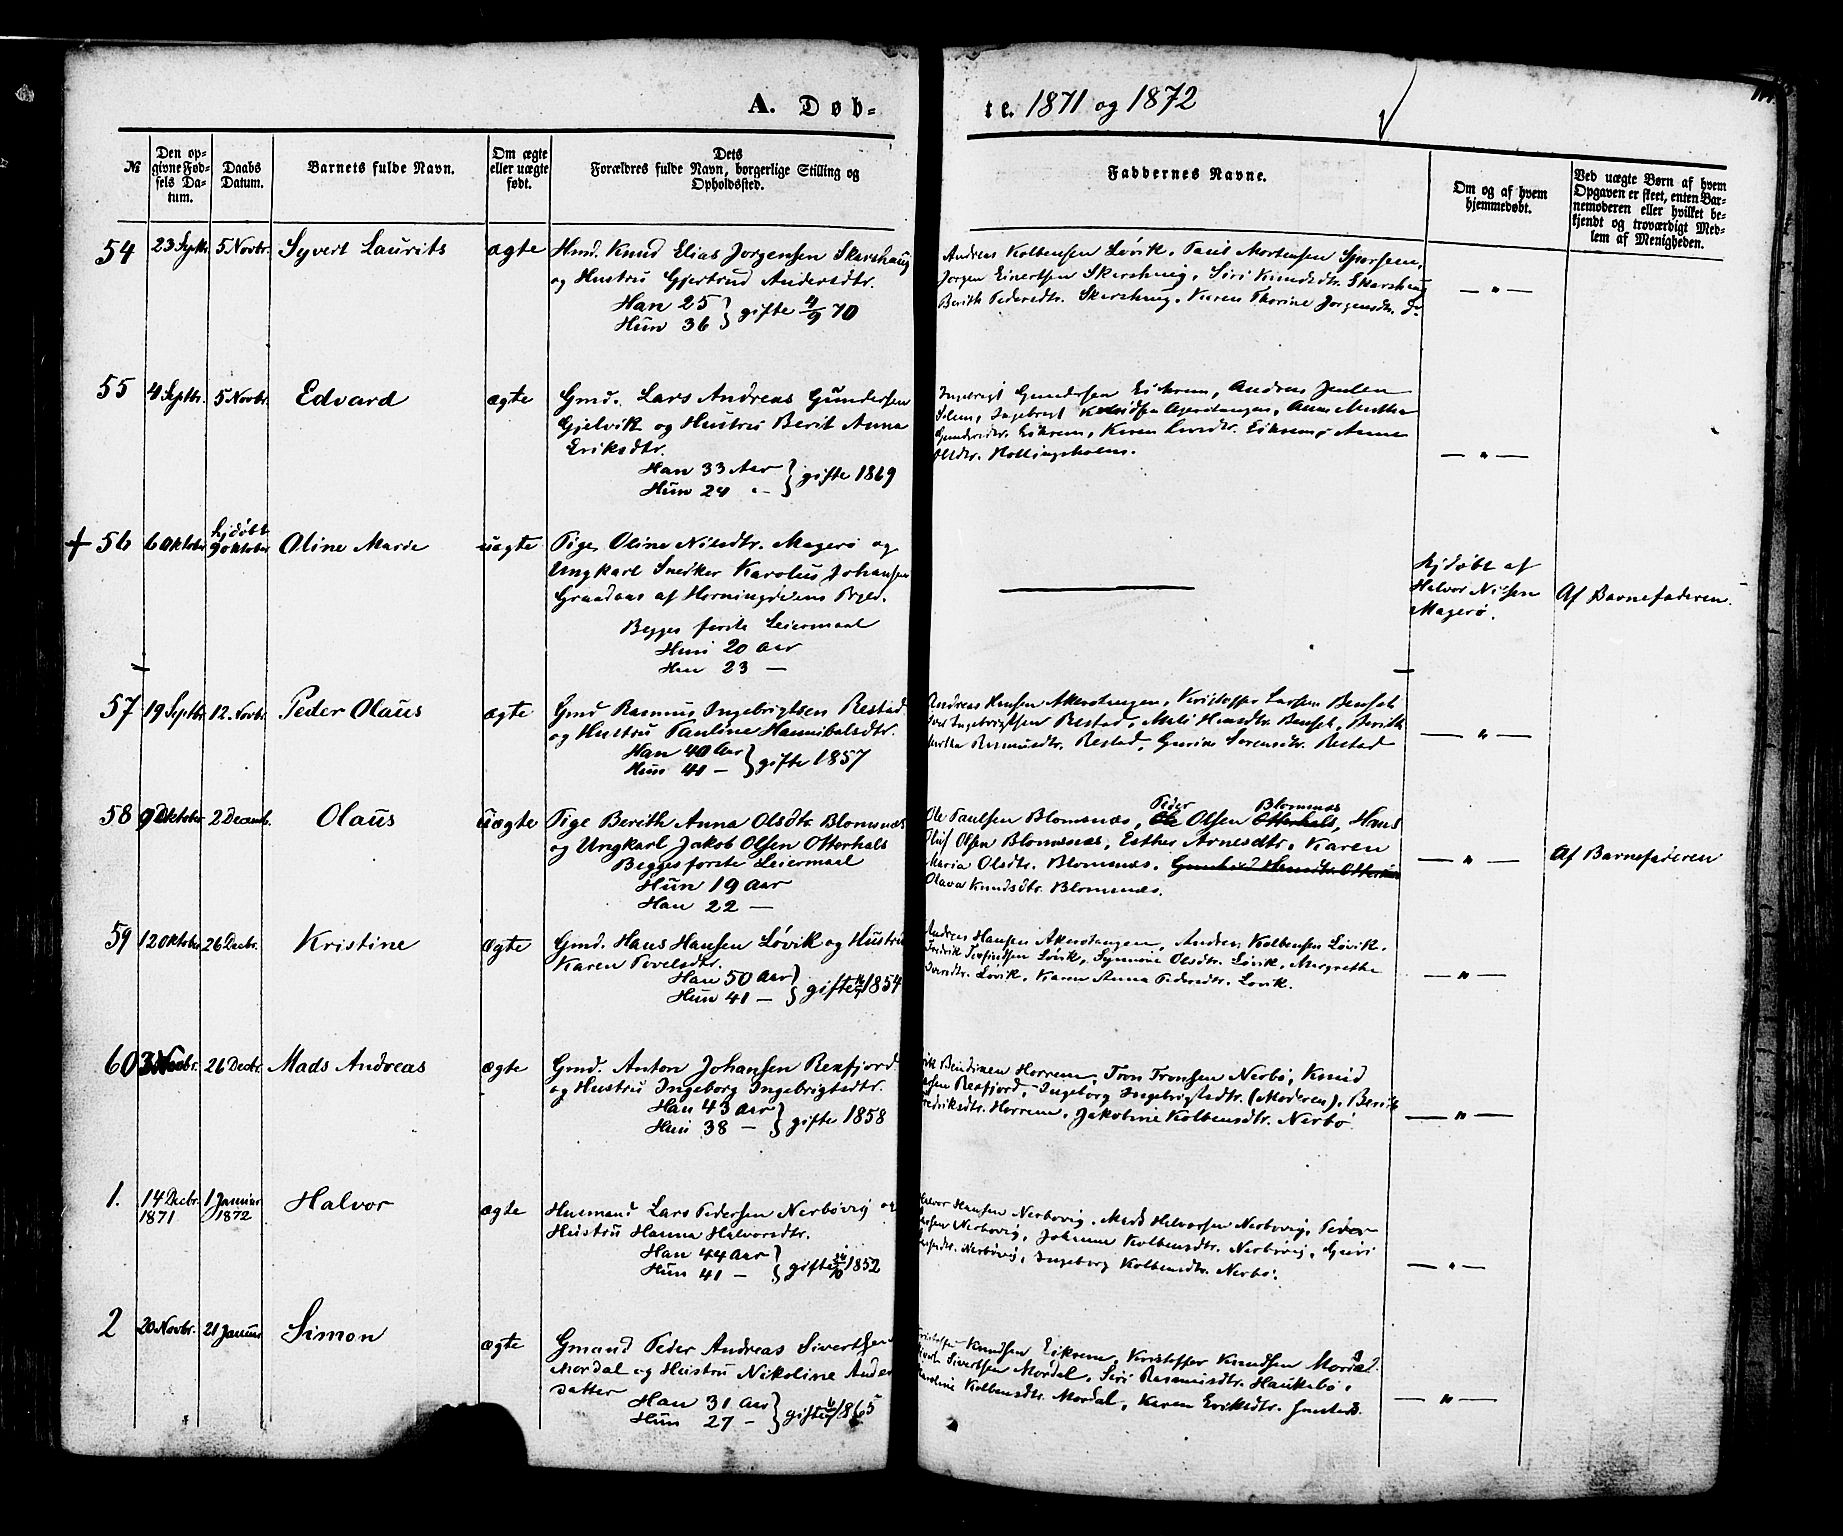 A. Døb-
te. 1871 og 1872
№
Den op-
givne Fød-
sels Da-
tum.
Daabs
Datum.
Barnets fulde Navn.
Om ægte
eller uægte
født.
Dets
Forældres fulde Navn, borgerlige Stilling og
Opholdssted.
Faddernes Navne.
Om og af hvem
hjemmedøbt.
Ved uægte Børn af hvem
Opgaven er skeet, enten Bar-
nemoderen eller hvilket be-
kjendt og troværdigt Med-
lem af Menigheden.
54 23 Septbr. 5 Novbr. Syvert Laurits ægte Hmd. Knud Elias Jørgensen Skarshaug
og Hustru Gjertrud Andersdtr.
Han 25
Hun 36 } gifte 4/9 70
Andreas Kolbensen Løvik, Mortensen
Jørgen Einertsen Skarshaug, Siri Knudsdtr. Skarshaug
Berith Pedersdtr. Skarshaug, Karen Thorine Jørgensdtr. do
— " —
55 4 Septbr. 5 Novbr. Edvard ægte Gmd. Lars Andreas Gundersen
Gjelvik og Hustru Berit Anna
Eriksdtr.
Han 33 Aar
Hun 24 - } gifte 1869
Ingebrigt Gundersen Eikrem, Andreas Jensen
Ingebrigt Akerotangen, Anne Martha
Gundersdtr. Eikrem, Karen Eikrem, Anne
Olsdtr. Hollingsholm.
— " —
+ 56 6 Oktober hjdøbt
9 Oktober Oline Marie uægte Pige Oline Nilsdtr. Magerø og
Ungkarl Snedker Karolus Johansen
Graadaas af Horningdalens Prgjld.
Begges første Leiermaal
Hun 20 Aar
Han 23 —
hjdøbt af
Halvor Nilsen
Magerø.
Af Barnefaderen.
57 19 Septbr. 12 Novbr. Peder Olaus ægte Gmd Rasmus Ingebrigtsen Restad
og Hustru Pauline Hannibalsdtr.
Han 40 Aar
Hun 41 — } gifte 1857
Andreas Hansen Akerotangen, Kristoffer Larsen
Ingebrigtsen Restad, Mali Hansdtr. Berith
Martha Rasmusdtr. Restad, Gurine Sørensdtr. Restad
— " —
58 9 Oktober 2 Decemb. Olaus uægte Pige Berith Anna Olsdtr. Blomsnæs
og Ungkarl Jakob Olsen Otterhals
Begges første Leiermaal
Hun 19 Aar
Han 22 —
Peder Blomsnæs
Ole Paulsen Blomsnæs, Ole Olsen Otterhals, Hans
Oluf Olsen Blomsnæs, Esther Arnesdtr. Karen
Maria Olsdtr. Blomsnæs.
Olava Knudsdtr. Blomsnæs.
— " —
Af Barnefaderen
59 12 Oktober 26 Decbr. Kristine ægte Gmd. Hans Hansen Løvik og Hustru
Karen Povelsdtr.
Han 50 Aar
Hun 41 — } gifte 1854
Andreas Hansen Akerotangen, Anders Kolbensen Løvik.
Fredrik Løvik, Synnøve Olsdtr. Løvik, Margrethe
Løvik, Karen Anna Pedersdtr. Løvik.
— " —
60 3 Novbr. 26 Decbr. Mads Andreas ægte Gmd. Anton Johansen Rexfjord
og Hustru Ingeborg Ingebrigtsdtr.
Han 43 Aar
Hun 38 — } gifte 1858
Bendixen Horrem, Tron Tronsen Nerbø, Knud
Rexfjord, Ingeborg Ingebrigtsdtr. (Moderen), Berit
Fredriksdtr. Horrem, Jakobine Kolbensdtr. Nerbø.
— " —
1. 14 Decbr.
1871 1 Januar
1872 Halvor ægte Husmand Lars Pedersen Nerbøvig og
Hustru Hanna Halvorsdtr.
Han 44 Aar
Hun 41 — } gifte 1852
Halvor Hansen Nerbøvig, Mads Halvorsen Nerbøvig, Peder
Nerbøvig, Johanne Kolbensdtr. Nerbøvig, Guri
Nerbøvig, Ingeborg Kolbensdtr. Nerbø.
— " —
2 20 Novbr. 21 Januar Simon ægte Gmand Peder Andreas Sivertsen
Mordal og Hustru Nikoline Anders
datter
Han 31 Aar
Hun 27 — } gifte 1865
Kristoffer Knudsen Eikrem, Kristoffer Knudsen Mordal.
Sivertsen Mordal, Siri Rasmusdtr. Haukebø,
Karoline Kolbensdtr. Mordal, Karen Eriksdtr.
— " —